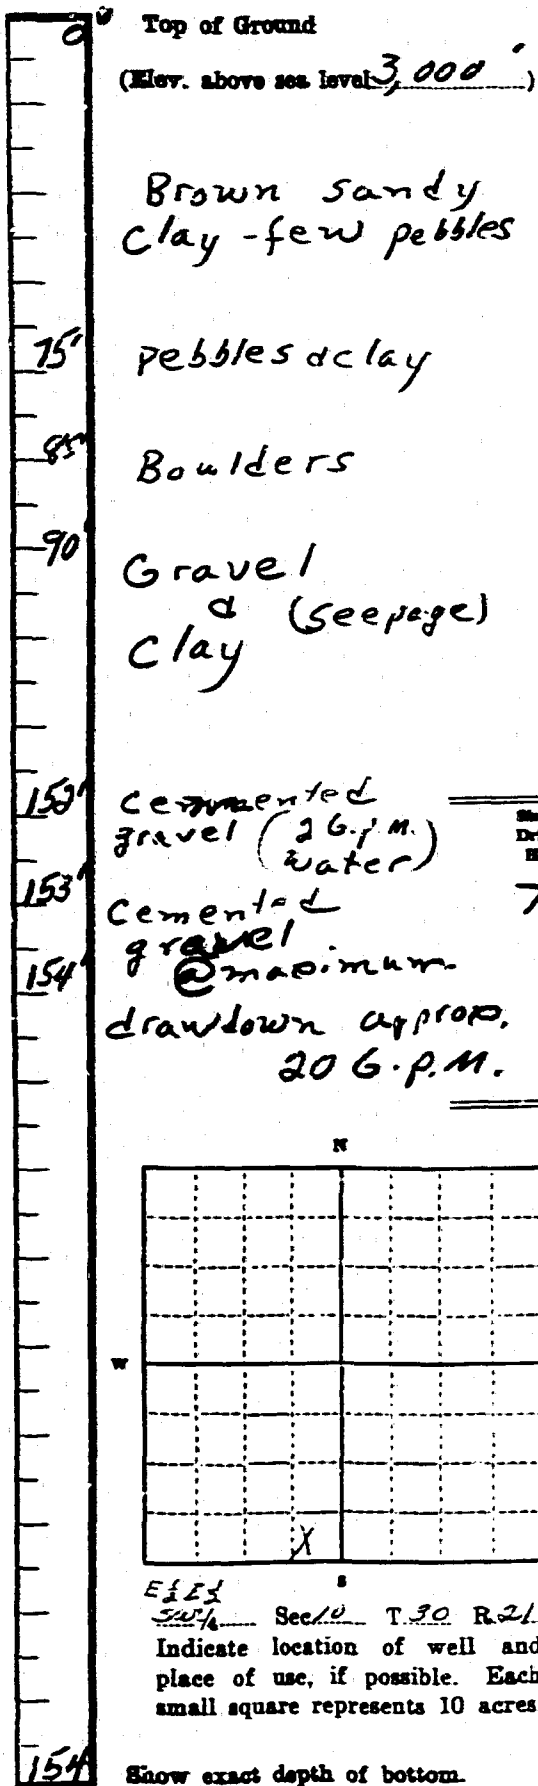 0' Top of Ground
(Elev. above sea level 3,000')
Brown sandy
Clay - few pebbles
75' pebbles & clay
85' Boulders
90' Gravel
& (seepage)
Clay
152' cemmented
gravel (2 G.p.M.
water)
153' Cemented
gravel
154' @ maximum
drawdown approx.
20 G.P.M.
N
W
X
S
E½E½
SW¼ Sec 10 T 30 R 21
Indicate location of well and
place of use, if possible. Each
small square represents 10 acres
154 Show exact depth of bottom.